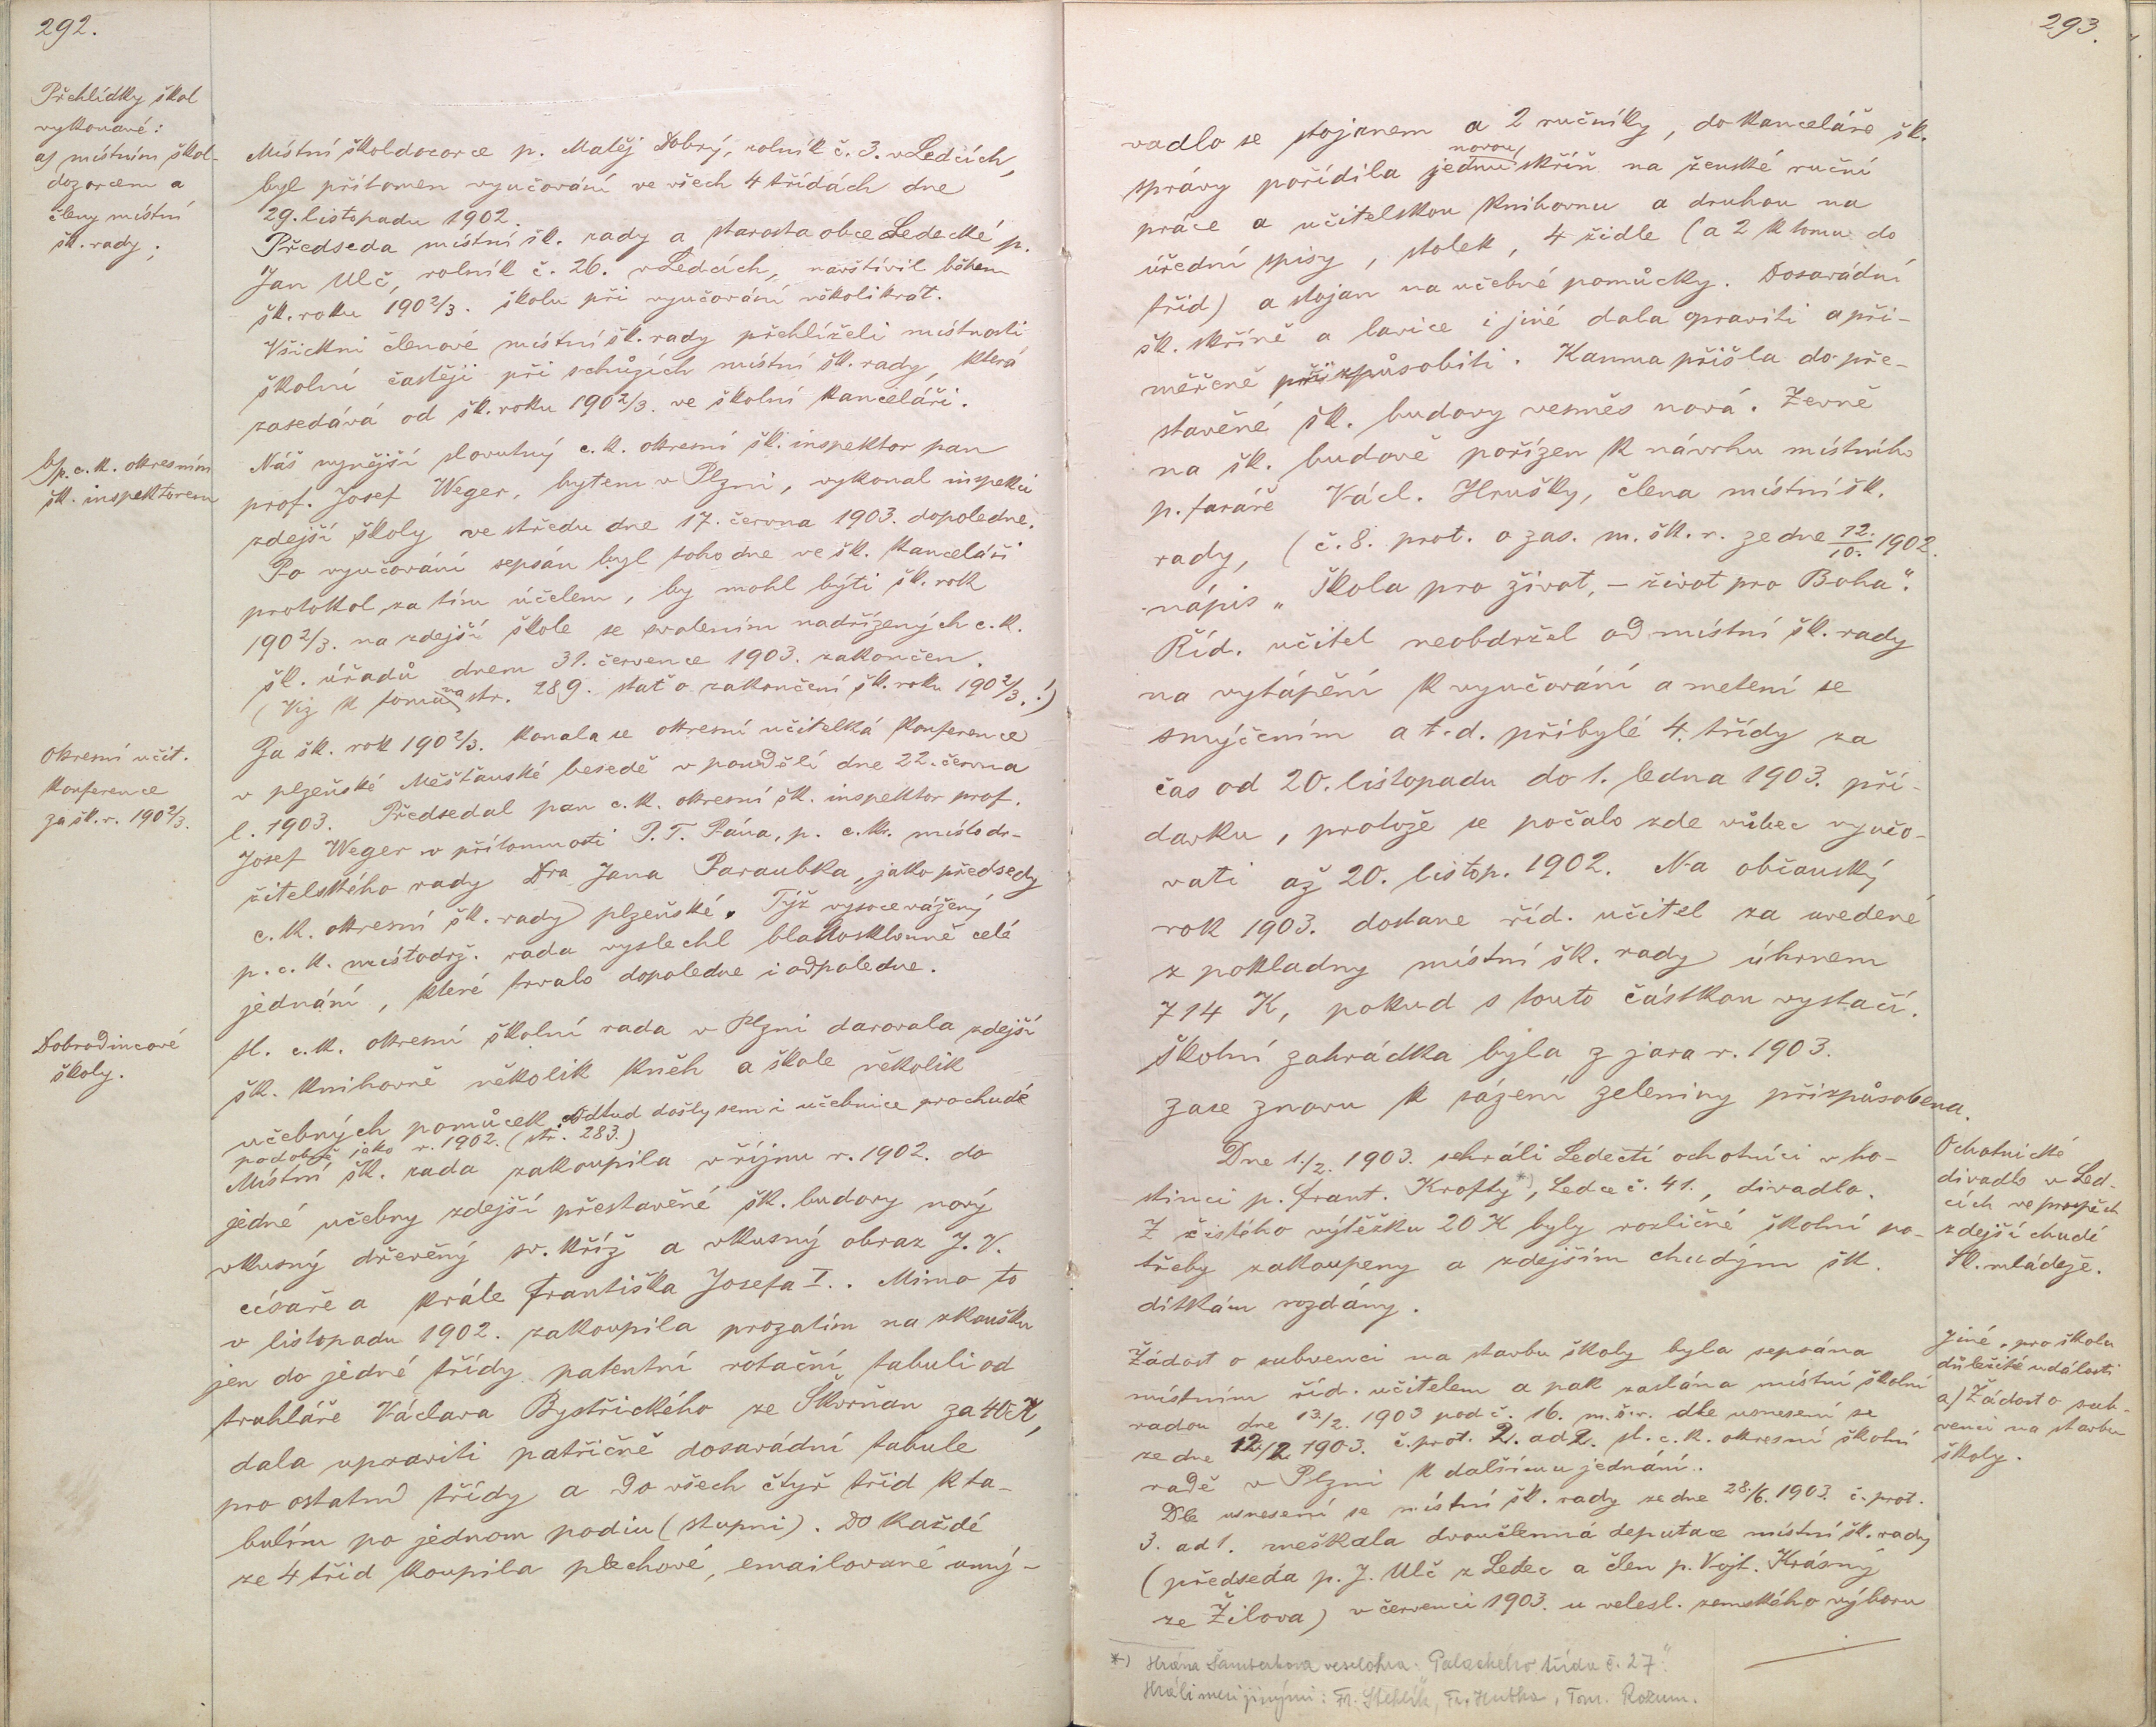 292.
Přehlídky škol
vykonané:
a) místním škol-
dozorcem a
členy místní
šk. rady;
Místní školdozorce p. Matěj Dobrý, rolník č. 3. v Ledcích,
byl přítomen vyučování ve všech 4 třídách dne
29. listopadu 1902.
Předseda místní šk. rady a starosta obce Ledecké p.
Jan Ulč, rolník č. 26. v Ledcích, navštívil během
šk. roku 1902/3. školu při vyučování několikrát.
Všickni členové místní šk. rady přehlíželi místnosti
školní častěji při schůzích místní šk. rady, která
zasedává od šk. roku 1902/3. ve školní kanceláři.
b) p. c. k. okresním
šk. inspektorem
Náš nynější slovutný c. k. okresní šk. inspektor pan
prof. Josef Weger, bytem v Plzni, vykonal inspekci
zdejší školy ve středu dne 17. června 1903. dopoledne.
Po vyučování sepsán byl toho dne ve šk. kanceláři
protokol za tím účelem, by mohl býti šk. rok
1902/3. na zdejší škole se svolením nadřízených c. k.
šk. úřadů dnem 31. července 1903. zakončen.
(Viz k tomu na str. 289. stať o zakončení šk. roku 1902/3.!)
Okresní učit.
konference
za šk. r. 1902/3.
Za šk. rok 1902/3. konala se okresní učitelká konference
v plzeňské Měšťanské besedě v pondělí dne 22. června
l. 1903. Předsedal pan c. k. okresní šk. inspektor prof.
Josef Weger v přítomnosti P. T. Pána, p. c. k. místodr-
žitelského rady Dra Jana Paraubka, jako předsedy
c. k. okresní šk. rady plzeňské. Týž vysocevážený
p. c. k. místodrž. rada vyslechl blahosklonně celé
jednání, které trvalo dopoledne i odpoledne.
Dobrodincové
školy.
Sl. c. k. okresní školní rada v Plzni darovala zdejší
šk. knihovně několik kněh a škole několik
učebných pomůcek. Odtud došly sem i učebnice pro chudé
podobně jako r. 1902. (str. 283.)
Místní šk. rada zakoupila v říjnu r. 1902. do
jedné učebny zdejší přestavěné šk. budovy nový
vkusný dřevěný sv. kříž a vkusný obraz J. V.
císaře a krále Františka Josefa I.. Mimo to
v listopadu 1902. zakoupila prozatím na zkoušku
jen do jedné třídy patentní rotační tabuli od
truhláře Václava Bystřického ze Škvrňan za 40 K,
dala upraviti patřičně dosavádní tabule
pro ostatní třídy a do všech čtyř tříd k ta-
bulím po jednom podiu (stupni). Do každé
ze 4 tříd koupila plechové, emailované umý-
293.
vadlo se stojanem a 2 ručníky, do kanceláře šk.
správy pořídila jednu novou skříň na ženské ruční
práce a učitelskou knihovnu a druhou na
úřední spisy, stolek, 4 židle (a 2 k tomu do
tříd) a stojan na učebné pomůcky. Dosavádní
šk. skříně a lavice i jiné dala opraviti a při-
měřeně přizpůsobiti. Kamna přišla do pře-
stavěné šk. budovy vesměs nová. Zevně
na šk. budově pořízen k návrhu místního
p. faráře Václ. Hrušky, člena místní šk.
rady, (č. 8. prot. o zas. m. šk. r. ze dne 12./10. 1902.
nápis „Škola pro život, – život pro Boha“.
Říd. učitel neobdržel od místní šk. rady
na vytápění k vyučování a metení se
smýčením a t. d. přibylé 4. třídy za
čas od 20. listopadu do 1. ledna 1903. pří-
davku, protože se počalo zde vůbec vyučo-
vati až 20. listop. 1902. Na občanský
rok 1903. dostane říd. učitel za uvedené
z pokladny místní šk. rady úhrnem
714 K, pokud s touto částkou vystačí.
Školní zahrádka byla z jara r. 1903.
zase znovu k sázení zeleniny přizpůsobena.
Dne 1./2. 1903. sehráli Ledečtí ochotníci v ho-
stinci p. Frant. Krofty*), Ledce č. 41., divadlo.
Z čistého výtěžku 20 K byly rozličné školní po-
třeby zakoupeny a zdejším chudým šk.
dítkám rozdány.
Ochotnické
divadlo v Led-
cích ve prospěch
zdejší chudé
šk. mládeže.
Žádost o subvenci na stavbu školy byla sepsána
místním říd. učitelem a pak zaslána místní školní
radou dne 13./2. 1903 pod č. 16. m. š. r. dle usnesení se
ze dne 12./2. 1903. č. prot. 2. ad 2. sl. c. k. okresní školní
radě v Plzni k dalšímu jednání.
Dle usnesení se místní šk. rady ze dne 28./6. 1903. č. prot.
3. ad 1. meškala dvoučlenná deputace místní šk. rady
(předseda p. J. Ulč z Ledec a člen p. Vojt. Krásný
ze Žilova) v červenci 1903. u velesl. zemského výboru
Jiné, pro školu
důležité události
a) Žádost o sub-
venci na stavbu
školy.
*) Hrána Šamberkova veselohra: Palackého třída č. 27“.
Hráli mezi jinými: Fr. Stehlík, Fr. Hubka, Tom. Rozum.